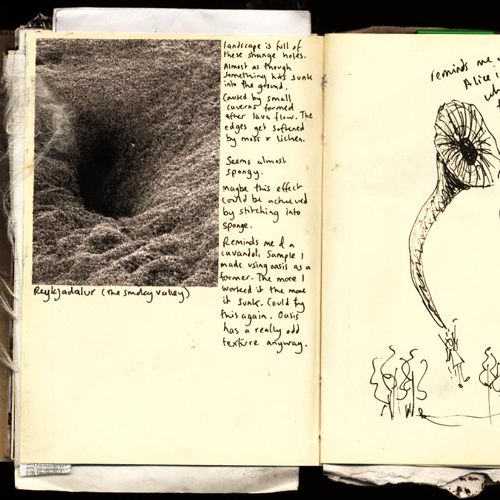 landscape is full of
these strange holes.
Almost as though
something has sunk
into the ground.
Caused by small
caverns formed
after lava flow. The
edges get softened
by moss & lichen.
Seems almost
spongy.
Maybe this effect
could be achieved
by stitching into
sponge.
Reminds me of a
cavandoli sample I
made using oasis as a
former. The more I
worked it the more
it sunk. Could try
this again. Oasis
has a really odd
texture anyway.
Reykjadalur (The smokey valley)
reminds me
Alice